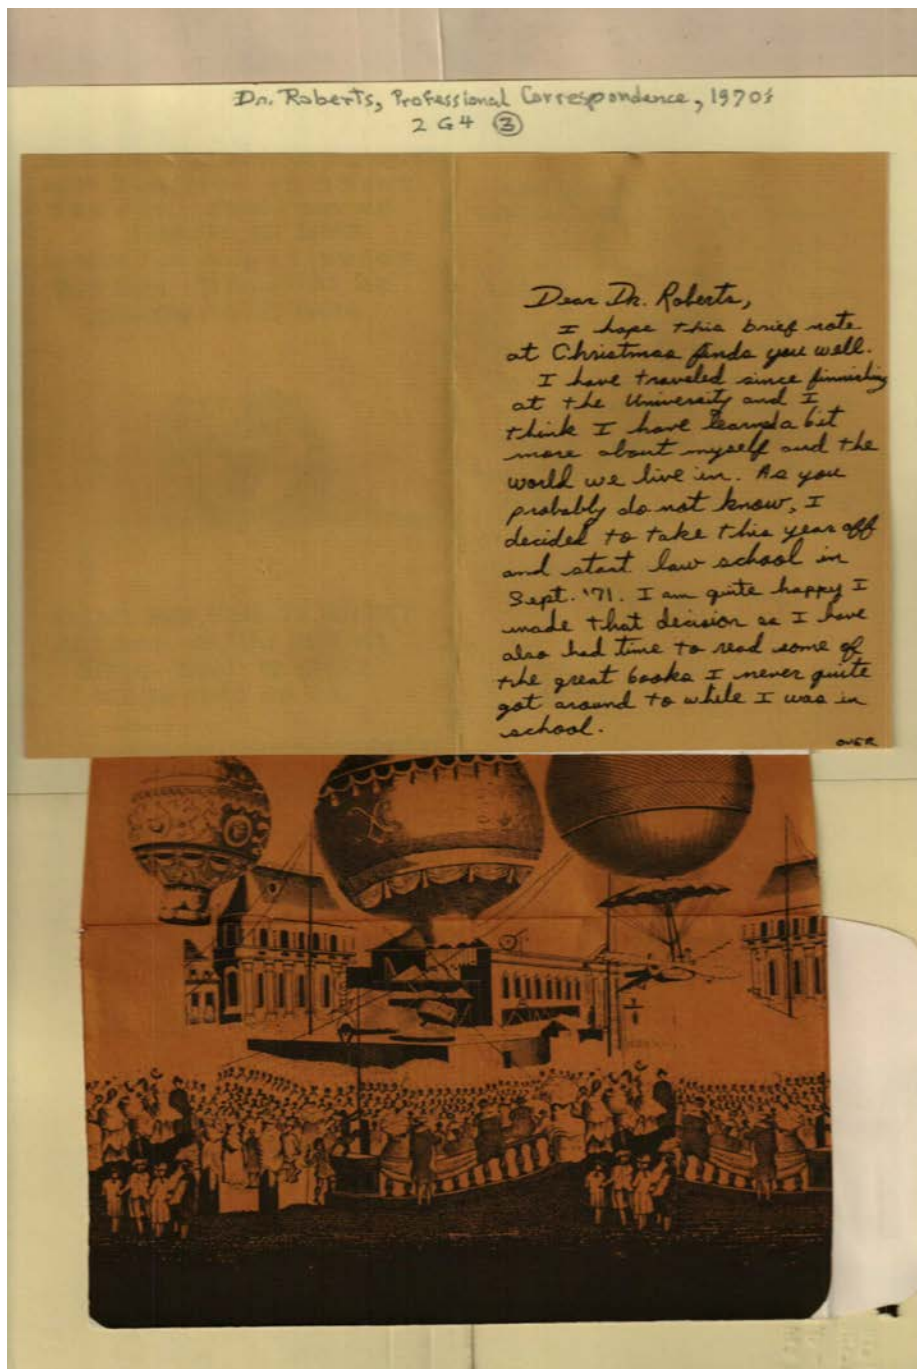 Dr. Roberts, Professional Correspondence, 1970's
2 G4 ③
Dear Dr. Roberts,
I hope this brief note
at Christmas finds you well.
I have traveled since finnishing
at the University and I
think I have learned a bit
more about myself and the
world we live in. As you
probably do not know, I
decided to take this year off
and start law school in
Sept. '71. I am quite happy I
made that decision as I have
also had time to read some of
the great books I never quite
got around to while I was in
school.
OVER